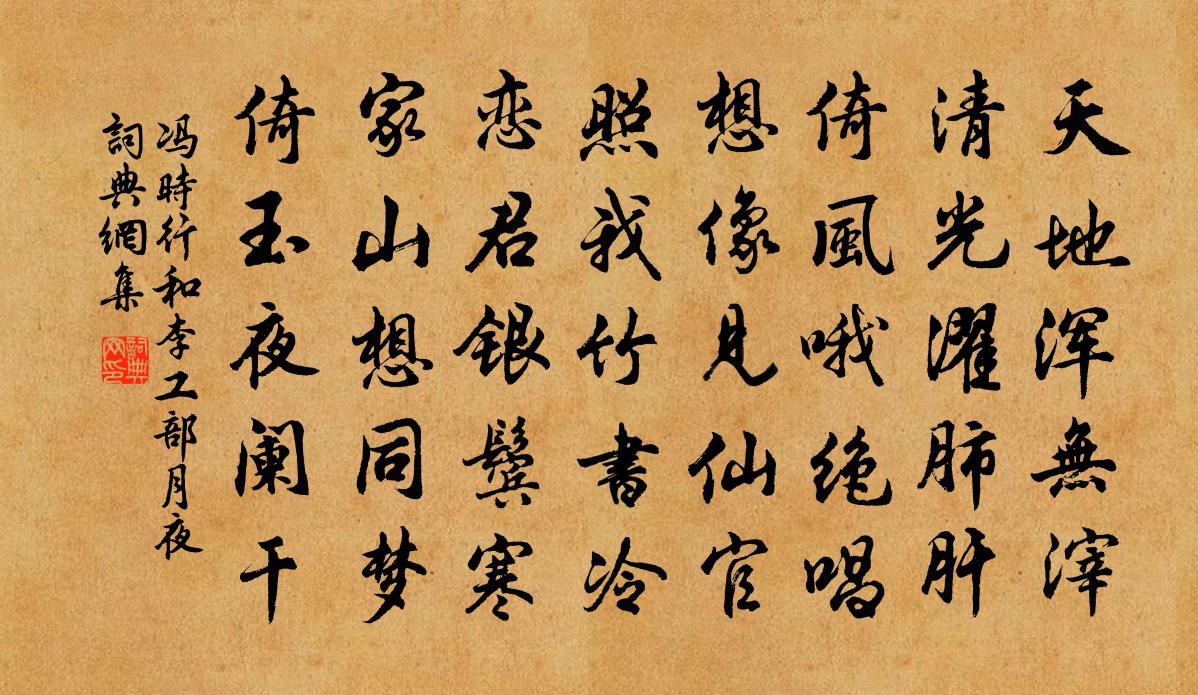 天地浑無滓
清光濯肺肝
倚風哦绝唱
想像見仙官
照我竹書冷
恋君银鬓寒
家山想同梦
倚玉夜阑干
冯時行和李工部月夜
詞典網集
詞典網印